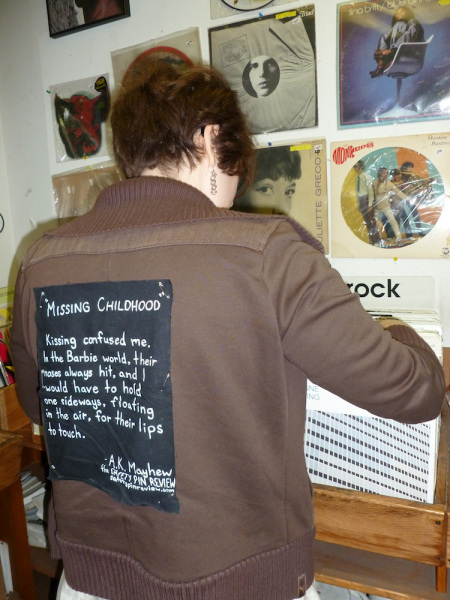 MISSING CHILDHOOD
Kissing confused me.
In the Barbie world, their
noses always hit, and I
would have to hold
one sideways, floating
in the air, for their lips
to touch.
-A.K. Mayhew
the SAFETY PIN REVIEW
safetypinreview.com
MONKEES
JULIETTE GRECO
rock